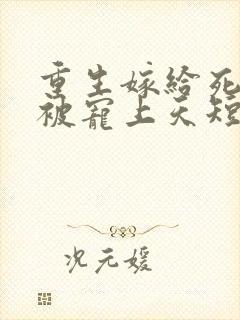 重生嫁给死
被宠上天短
况元媛